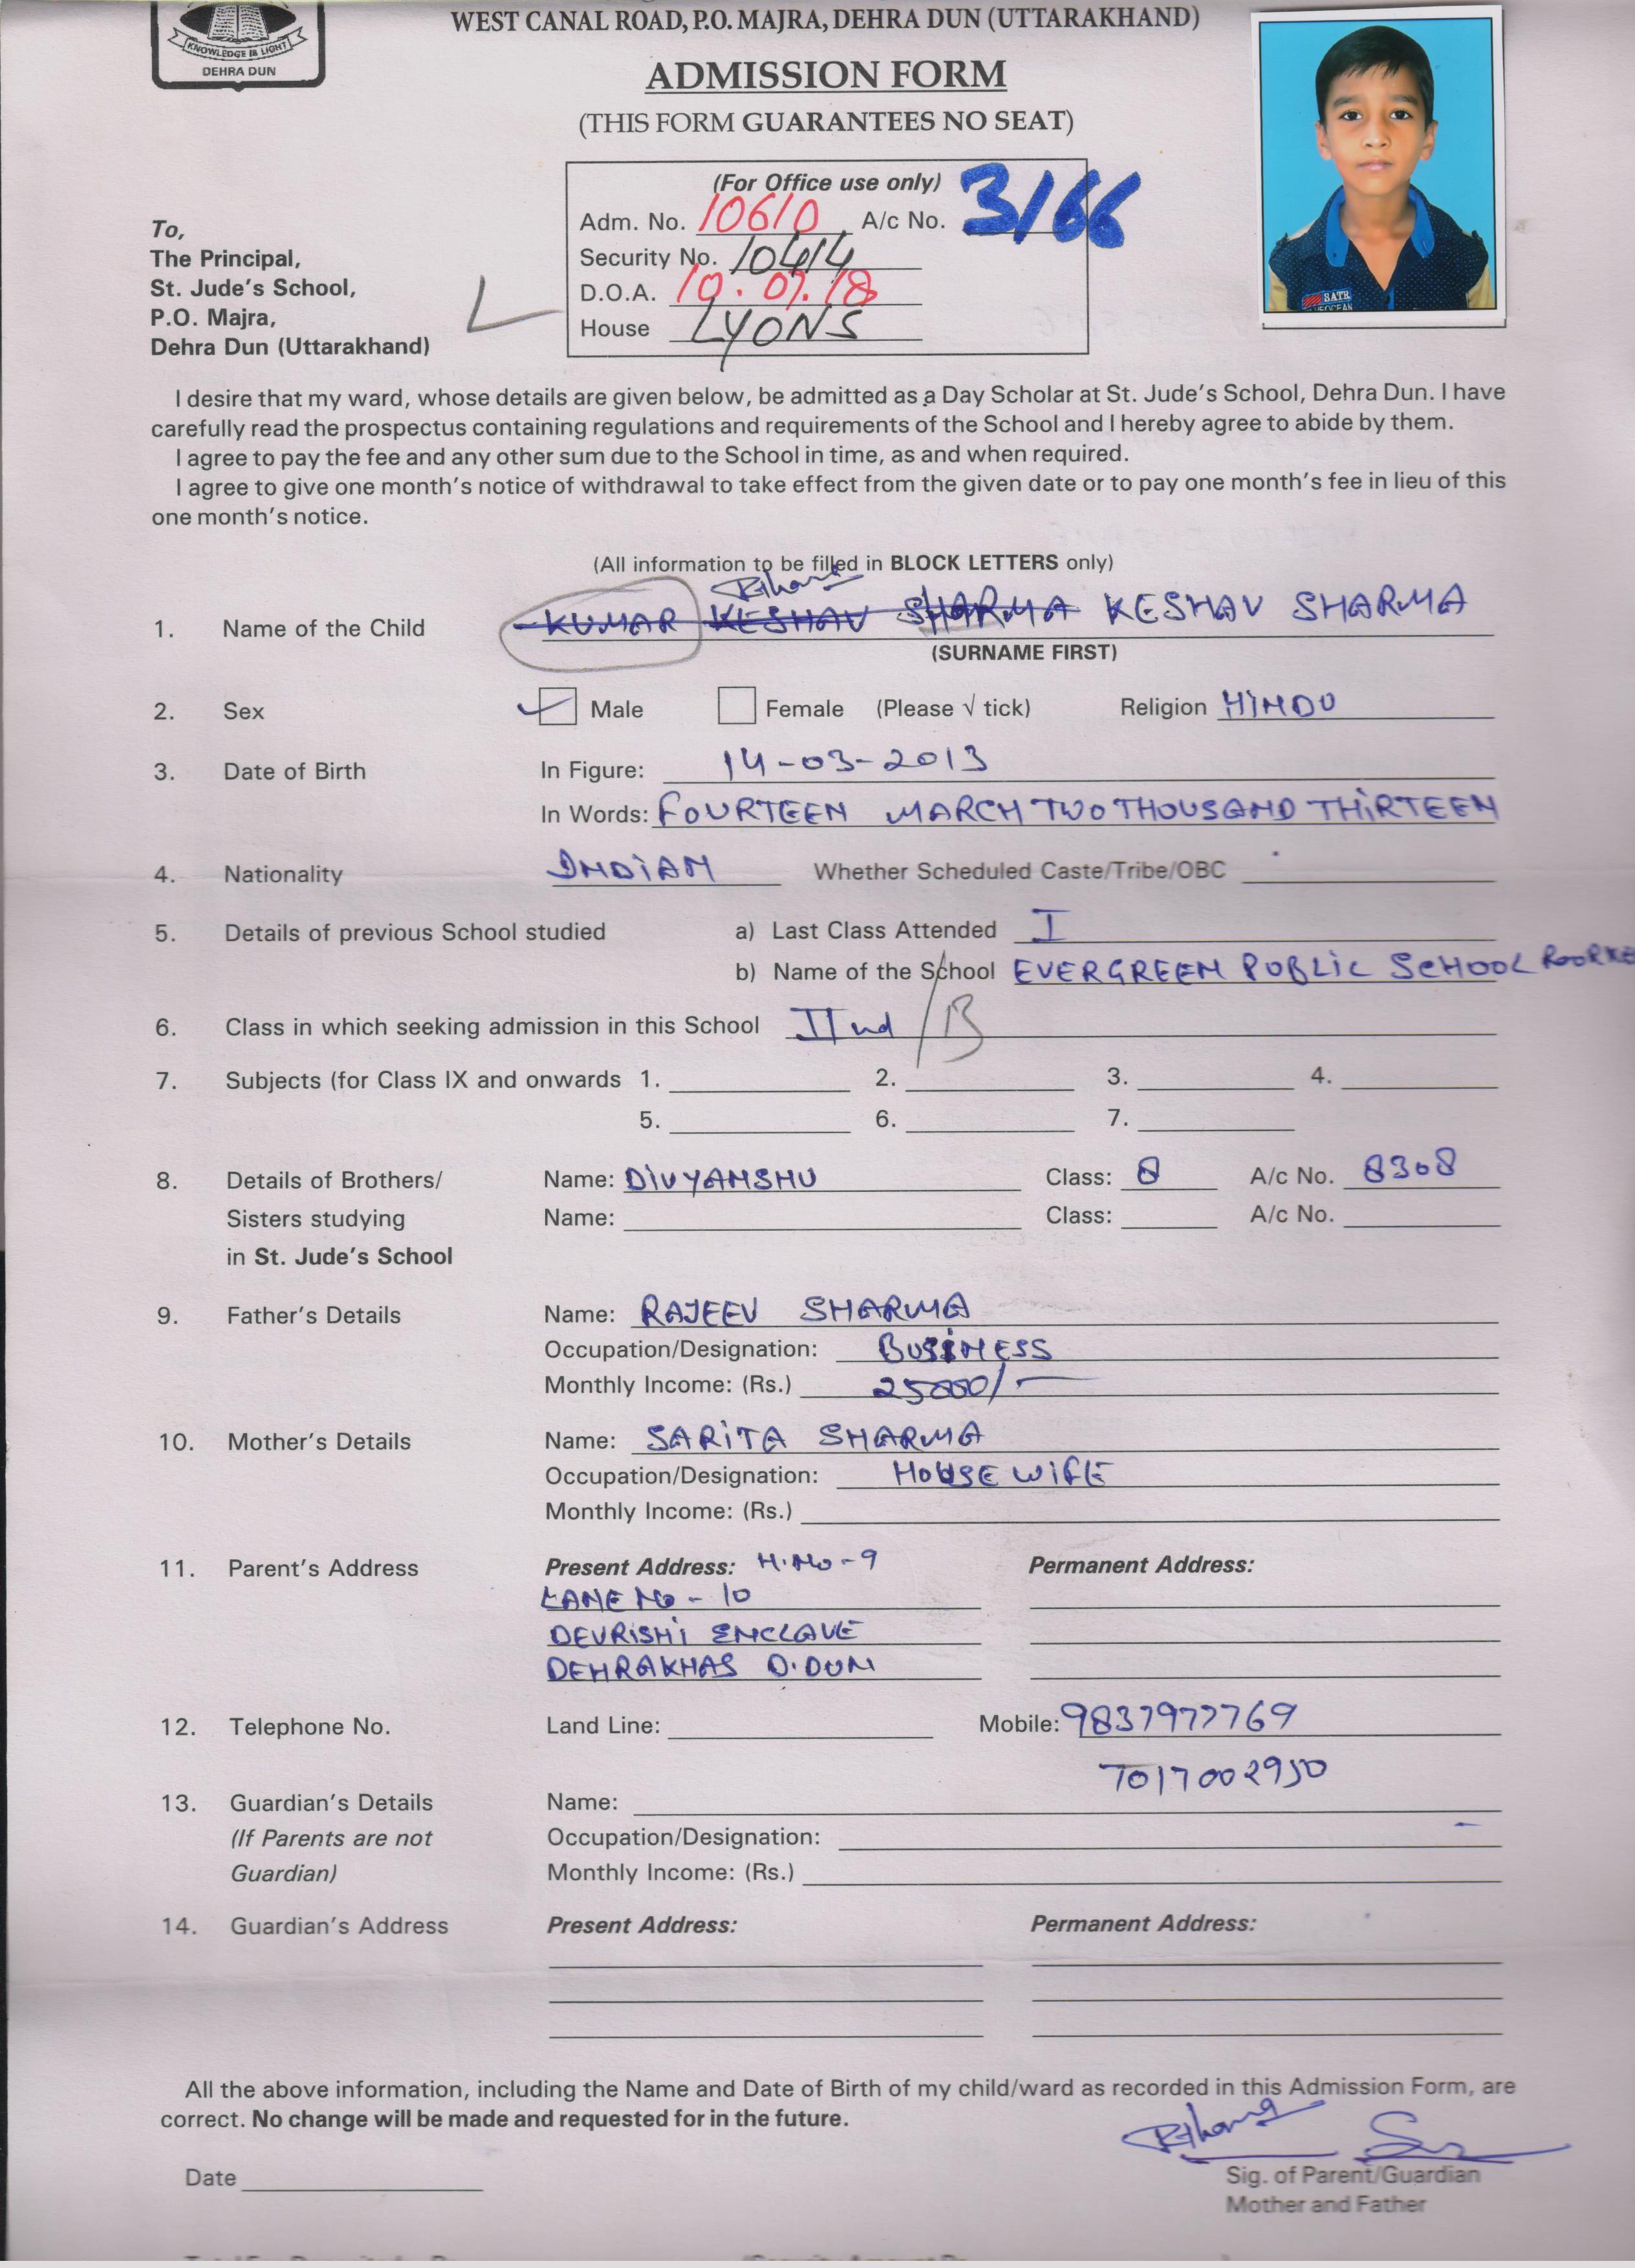 KNOWLEDGE IS LIGHT
DEHRA DUN
WEST CANAL ROAD, P.O. MAJRA, DEHRA DUN (UTTARAKHAND)
ADMISSION FORM
(THIS FORM GUARANTEES NO SEAT)
(For Office use only)
Adm. No. 10610 A/c No. 3166
Security No. 10414
D.O.A. 10.07.18
House LYONS
To,
The Principal,
St. Jude's School,
P.O. Majra,
Dehra Dun (Uttarakhand)
I desire that my ward, whose details are given below, be admitted as a Day Scholar at St. Jude's School, Dehra Dun. I have
carefully read the prospectus containing regulations and requirements of the School and I hereby agree to abide by them.
I agree to pay the fee and any other sum due to the School in time, as and when required.
I agree to give one month's notice of withdrawal to take effect from the given date or to pay one month's fee in lieu of this
one month's notice.
(All information to be filled in BLOCK LETTERS only)
1. Name of the Child KUMAR KESHAV SHARMA KESHAV SHARMA
(SURNAME FIRST)
2. Sex Male Female (Please √ tick) Religion HINDU
3. Date of Birth In Figure: 14-03-2013
In Words: FOURTEEN MARCH TWO THOUSAND THIRTEEN
4. Nationality INDIAN Whether Scheduled Caste/Tribe/OBC
5. Details of previous School studied a) Last Class Attended I
b) Name of the School EVERGREEN PUBLIC SCHOOL
6. Class in which seeking admission in this School IInd /B
7. Subjects (for Class IX and onwards 1. 2. 3. 4.
5. 6. 7.
8. Details of Brothers/ Name: DIVYANSHU Class: 8 A/c No. 8308
Sisters studying Name: Class: A/c No.
in St. Jude's School
9. Father's Details Name: RAJEEV SHARMA
Occupation/Designation: BUSINESS
Monthly Income: (Rs.) 25000/-
10. Mother's Details Name: SARITA SHARMA
Occupation/Designation: HOUSE WIFE
Monthly Income: (Rs.)
11. Parent's Address Present Address: H.No-9 Permanent Address:
LANE No - 10
DEVRISHI ENCLAVE
DEHRAKHAS D.DUN
12. Telephone No. Land Line: Mobile: 9837977769
7017002950
13. Guardian's Details Name:
(If Parents are not Occupation/Designation:
Guardian) Monthly Income: (Rs.)
14. Guardian's Address Present Address: Permanent Address:
All the above information, including the Name and Date of Birth of my child/ward as recorded in this Admission Form, are
correct. No change will be made and requested for in the future.
Date
Sig. of Parent/Guardian
Mother and Father